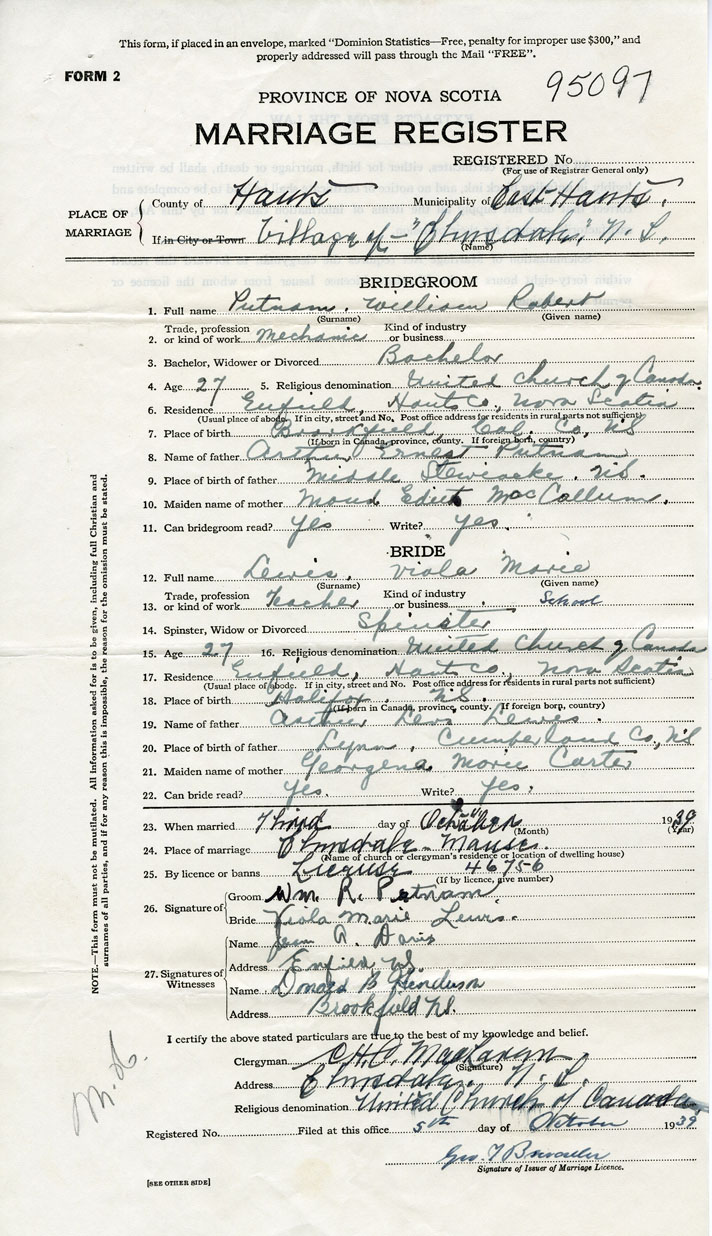 This form, if placed in an envelope, marked "Dominion Statistics—Free, penalty for improper use $300," and
properly addressed will pass through the Mail "FREE".
FORM 2
95097
PROVINCE OF NOVA SCOTIA
MARRIAGE REGISTER
REGISTERED No.
(For use of Registrar General only)
PLACE OF MARRIAGE
County of Hants Municipality of East Hants.
If in City or Town Village of "Elmsdale", N. S.
(Name)
BRIDEGROOM
1. Full name Putnam, William Robert
(Surname) (Given name)
2. Trade, profession or kind of work Mechanic Kind of industry or business
3. Bachelor, Widower or Divorced Bachelor
4. Age 27 5. Religious denomination United Church of Canada
6. Residence Enfield, Hants Co, Nova Scotia
(Usual place of abode. If in city, street and No. Post office address for residents in rural parts not sufficient)
7. Place of birth Brookfield, Col. Co, NS
(If born in Canada, province, county. If foreign born, country)
8. Name of father Arthur Ernest Putnam
9. Place of birth of father Middle Stewiacke, NS.
10. Maiden name of mother Maud Edith MacCallum.
11. Can bridegroom read? Yes Write? Yes.
BRIDE
12. Full name Lewis, Viola Marie
(Surname) (Given name)
13. Trade, profession or kind of work Teacher Kind of industry or business School
14. Spinster, Widow or Divorced Spinster
15. Age 27 16. Religious denomination United Church of Canada
17. Residence Enfield, Hants Co, Nova Scotia
(Usual place of abode. If in city, street and No. Post office address for residents in rural parts not sufficient)
18. Place of birth Halifax, NS.
(If born in Canada, province, county. If foreign born, country)
19. Name of father Arthur Lewis.
20. Place of birth of father Lynn, Cumberland Co, NS
21. Maiden name of mother Georgena Marie Carter
22. Can bride read? Yes. Write? Yes.
23. When married Third day of October 1939
(Month) (Year)
24. Place of marriage Elmsdale Manse.
(Name of church or clergyman's residence or location of dwelling house)
25. By licence or banns License 46756
(If by licence, give number)
26. Signature of
Groom Wm. R. Putnam
Bride Viola Marie Lewis.
27. Signatures of Witnesses
Name Jean A. Davis
Address Enfield NS.
Name Donald B Henderson
Address Brookfield NS.
I certify the above stated particulars are true to the best of my knowledge and belief.
Clergyman MacLaren
(Signature)
Address Elmsdale, N. S.
Religious denomination United Church of Canada
Registered No. Filed at this office 5th day of October 1939
Geo. T
Signature of Issuer of Marriage Licence.
[SEE OTHER SIDE]
NOTE.—This form must not be mutilated. All information asked for is to be given, including full Christian and
surnames of all parties, and if for any reason this is impossible, the reason for the omission must be stated.